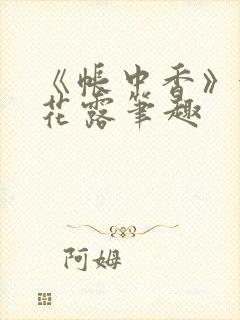 《帐中香》
花露笔趣
阿姆